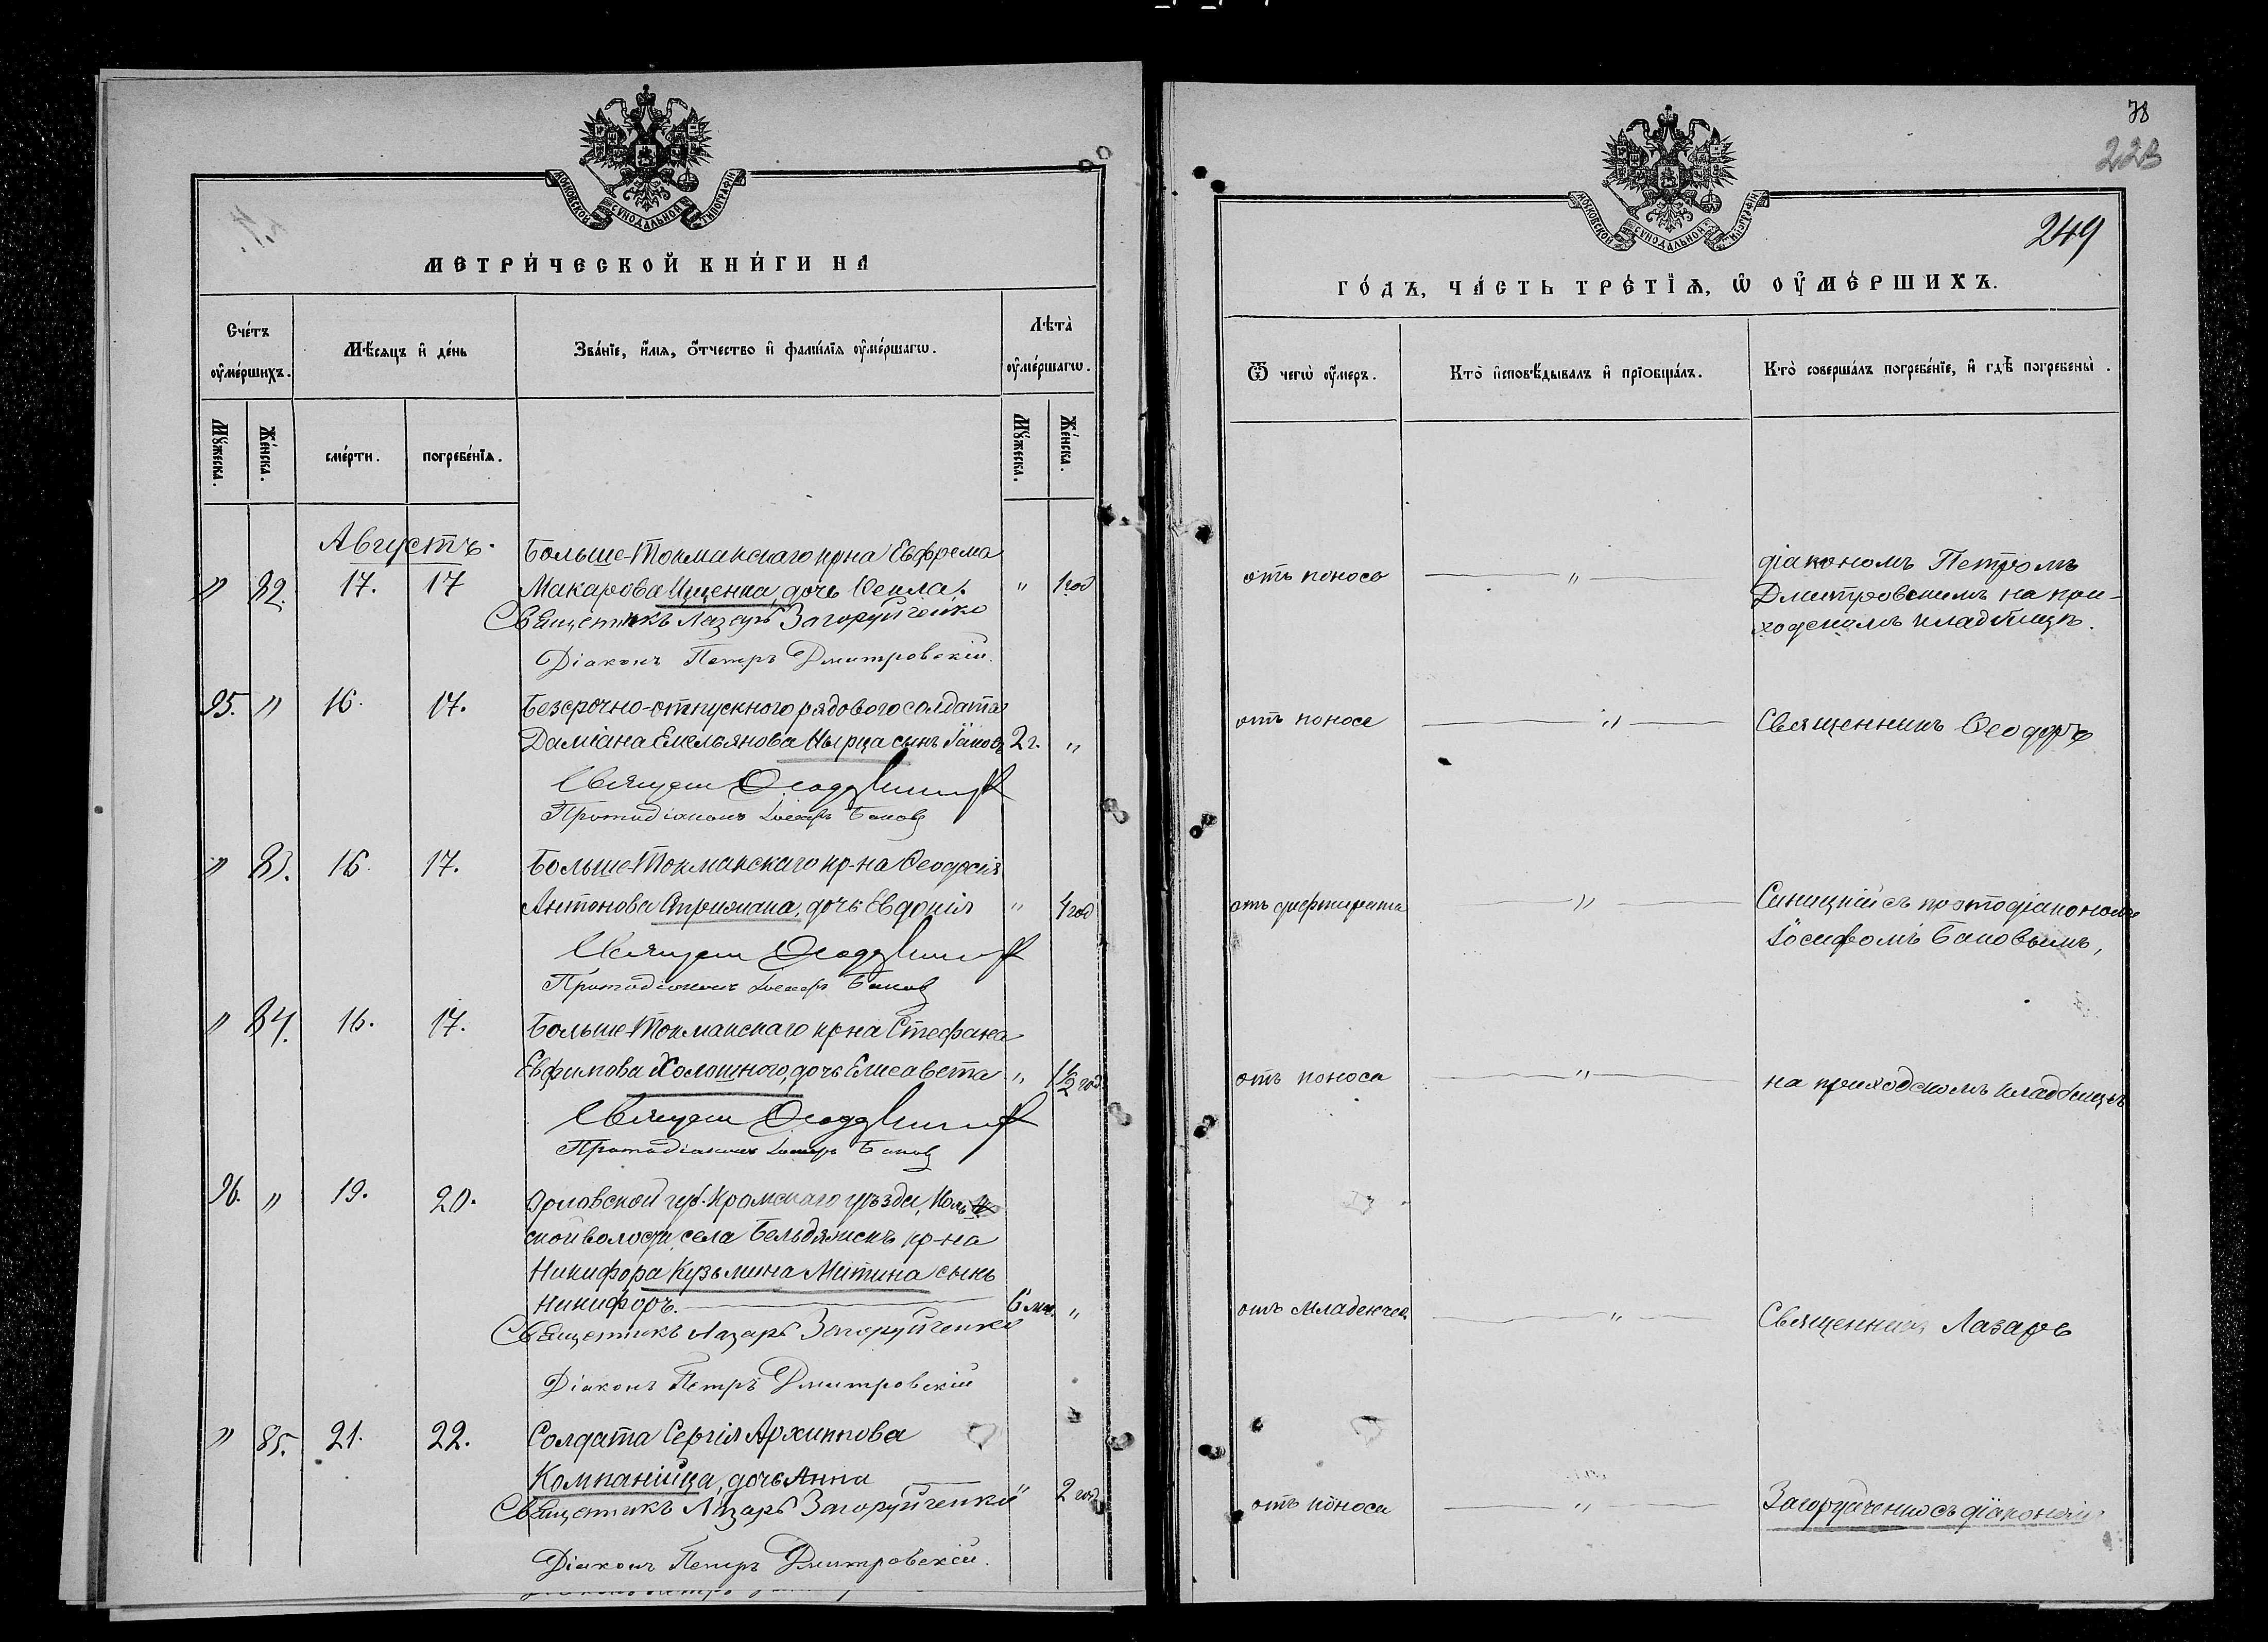 МОСКОВСКОЙ СѴНОДАЛЬНОЙ ТИПОГРАФІИ
МЕТРИ́ЧЕСКОЙ КНИ́ГИ НА
Сче́тъ оуме́ршихъ.
Мѣ́сяцъ и де́нь
Зва́ніе, и́мя, о́тчество и фами́лія оуме́ршагѡ.
Лѣта̀ оуме́ршагѡ.
Му́жеска.
Же́нска.
сме́рти.
погребе́нія.
Му́жеска.
Же́нска.
Августъ.
Больше-Токмакскаго кр-на Ефрема
" 82. 17. 17 Макарова Ищенка, дочь Ѳекла. " 1 год
Священикъ Лазарь Загоруйченко
Діаконъ Петръ Дмитровскій.
95. " 16. 17. Безсрочно-отпускного рядового солдата
Даміана Емельянова сынъ Іаковъ 2 г. "
Священ Ѳеодор Синицкій
Протодіаконъ Іосифъ Баковъ
" 83. 16. 17. Больше-Токмакскаго кр-на Ѳеодосія
Антонова дочь Евдокія " 4 год
Священ Ѳеодор Синицкій
Протодіаконъ Іосифъ Баковъ
" 84. 16. 17. Больше-Токмакскаго кр-на Стефана
Евфимова Холошного, дочь Елисавета " 1½ год.
Священ Ѳеодор Синицкій
Протодіаконъ Іосифъ Баковъ
96. " 19. 20. Орловской губ. Кромскаго уѣзда,
ской волости, села кр-на
Никифора Кузьмина Митина сынъ
Никифоръ. 6 мц. "
Священикъ Лазарь Загоруйченко
Діаконъ Петръ Дмитровскій
" 85. 21. 22. Солдата Сергія Архиппова
Компанійца, дочь Анна " 2 год
Священикъ Лазарь Загоруйченко
Діаконъ Петръ Дмитровскій.
78
223
249
МОСКОВСКОЙ СѴНОДАЛЬНОЙ ТИПОГРАФІИ
ГО́ДЪ, ЧА́СТЬ ТРЕ́ТІЯ, Ѡ ОУМЕ́РШИХЪ.
Ѿ чегѡ̀ оу́меръ.
Кто̀ исповѣ́дывалъ и пріобща́лъ.
Кто̀ соверша́лъ погребе́ніе, и гдѣ̀ погребены̀.
отъ поноса " діакономъ Петромъ
Дмитровскимъ на при-
ходскомъ кладбищѣ.
отъ поноса " Священникъ Ѳеодоръ
отъ дифтерита " Синицкій съ протодіакономъ
Іосифомъ Баковымъ,
отъ поноса " на приходскомъ кладбищѣ
отъ младенчес. " Священникъ Лазарь
отъ поноса " Загоруйченко съ діакономъ